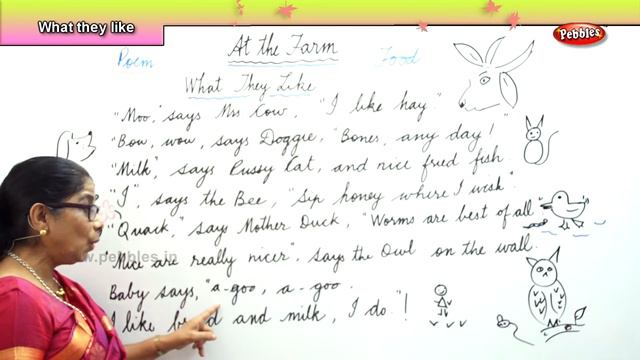 What they like
Pebbles
At the Farm
Poem
Food
What They Like
"Moo," says Mrs Cow, "I like hay."
"Bow, wow, says Doggie, "Bones, any day!
"Milk", says Pussy Cat, and nice fried fish.
"I", says the Bee, "Sip honey where I wish".
"Quack," says Mother Duck, "Worms are best of all
Mice are really nicer", says the Owl on the wall.
www.pebbles.in
Baby says, "a-goo, a-goo.
I like and milk, I do."!